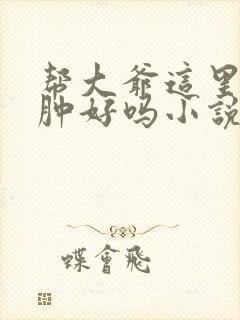 帮大爷這里
肿好吗小說
蝶會飛